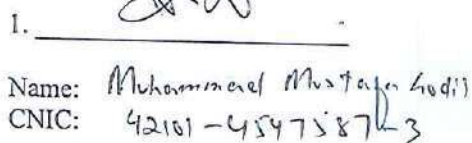 1.
Name: Muhammad Mustafa Godil
CNIC: 42101-4547587-3